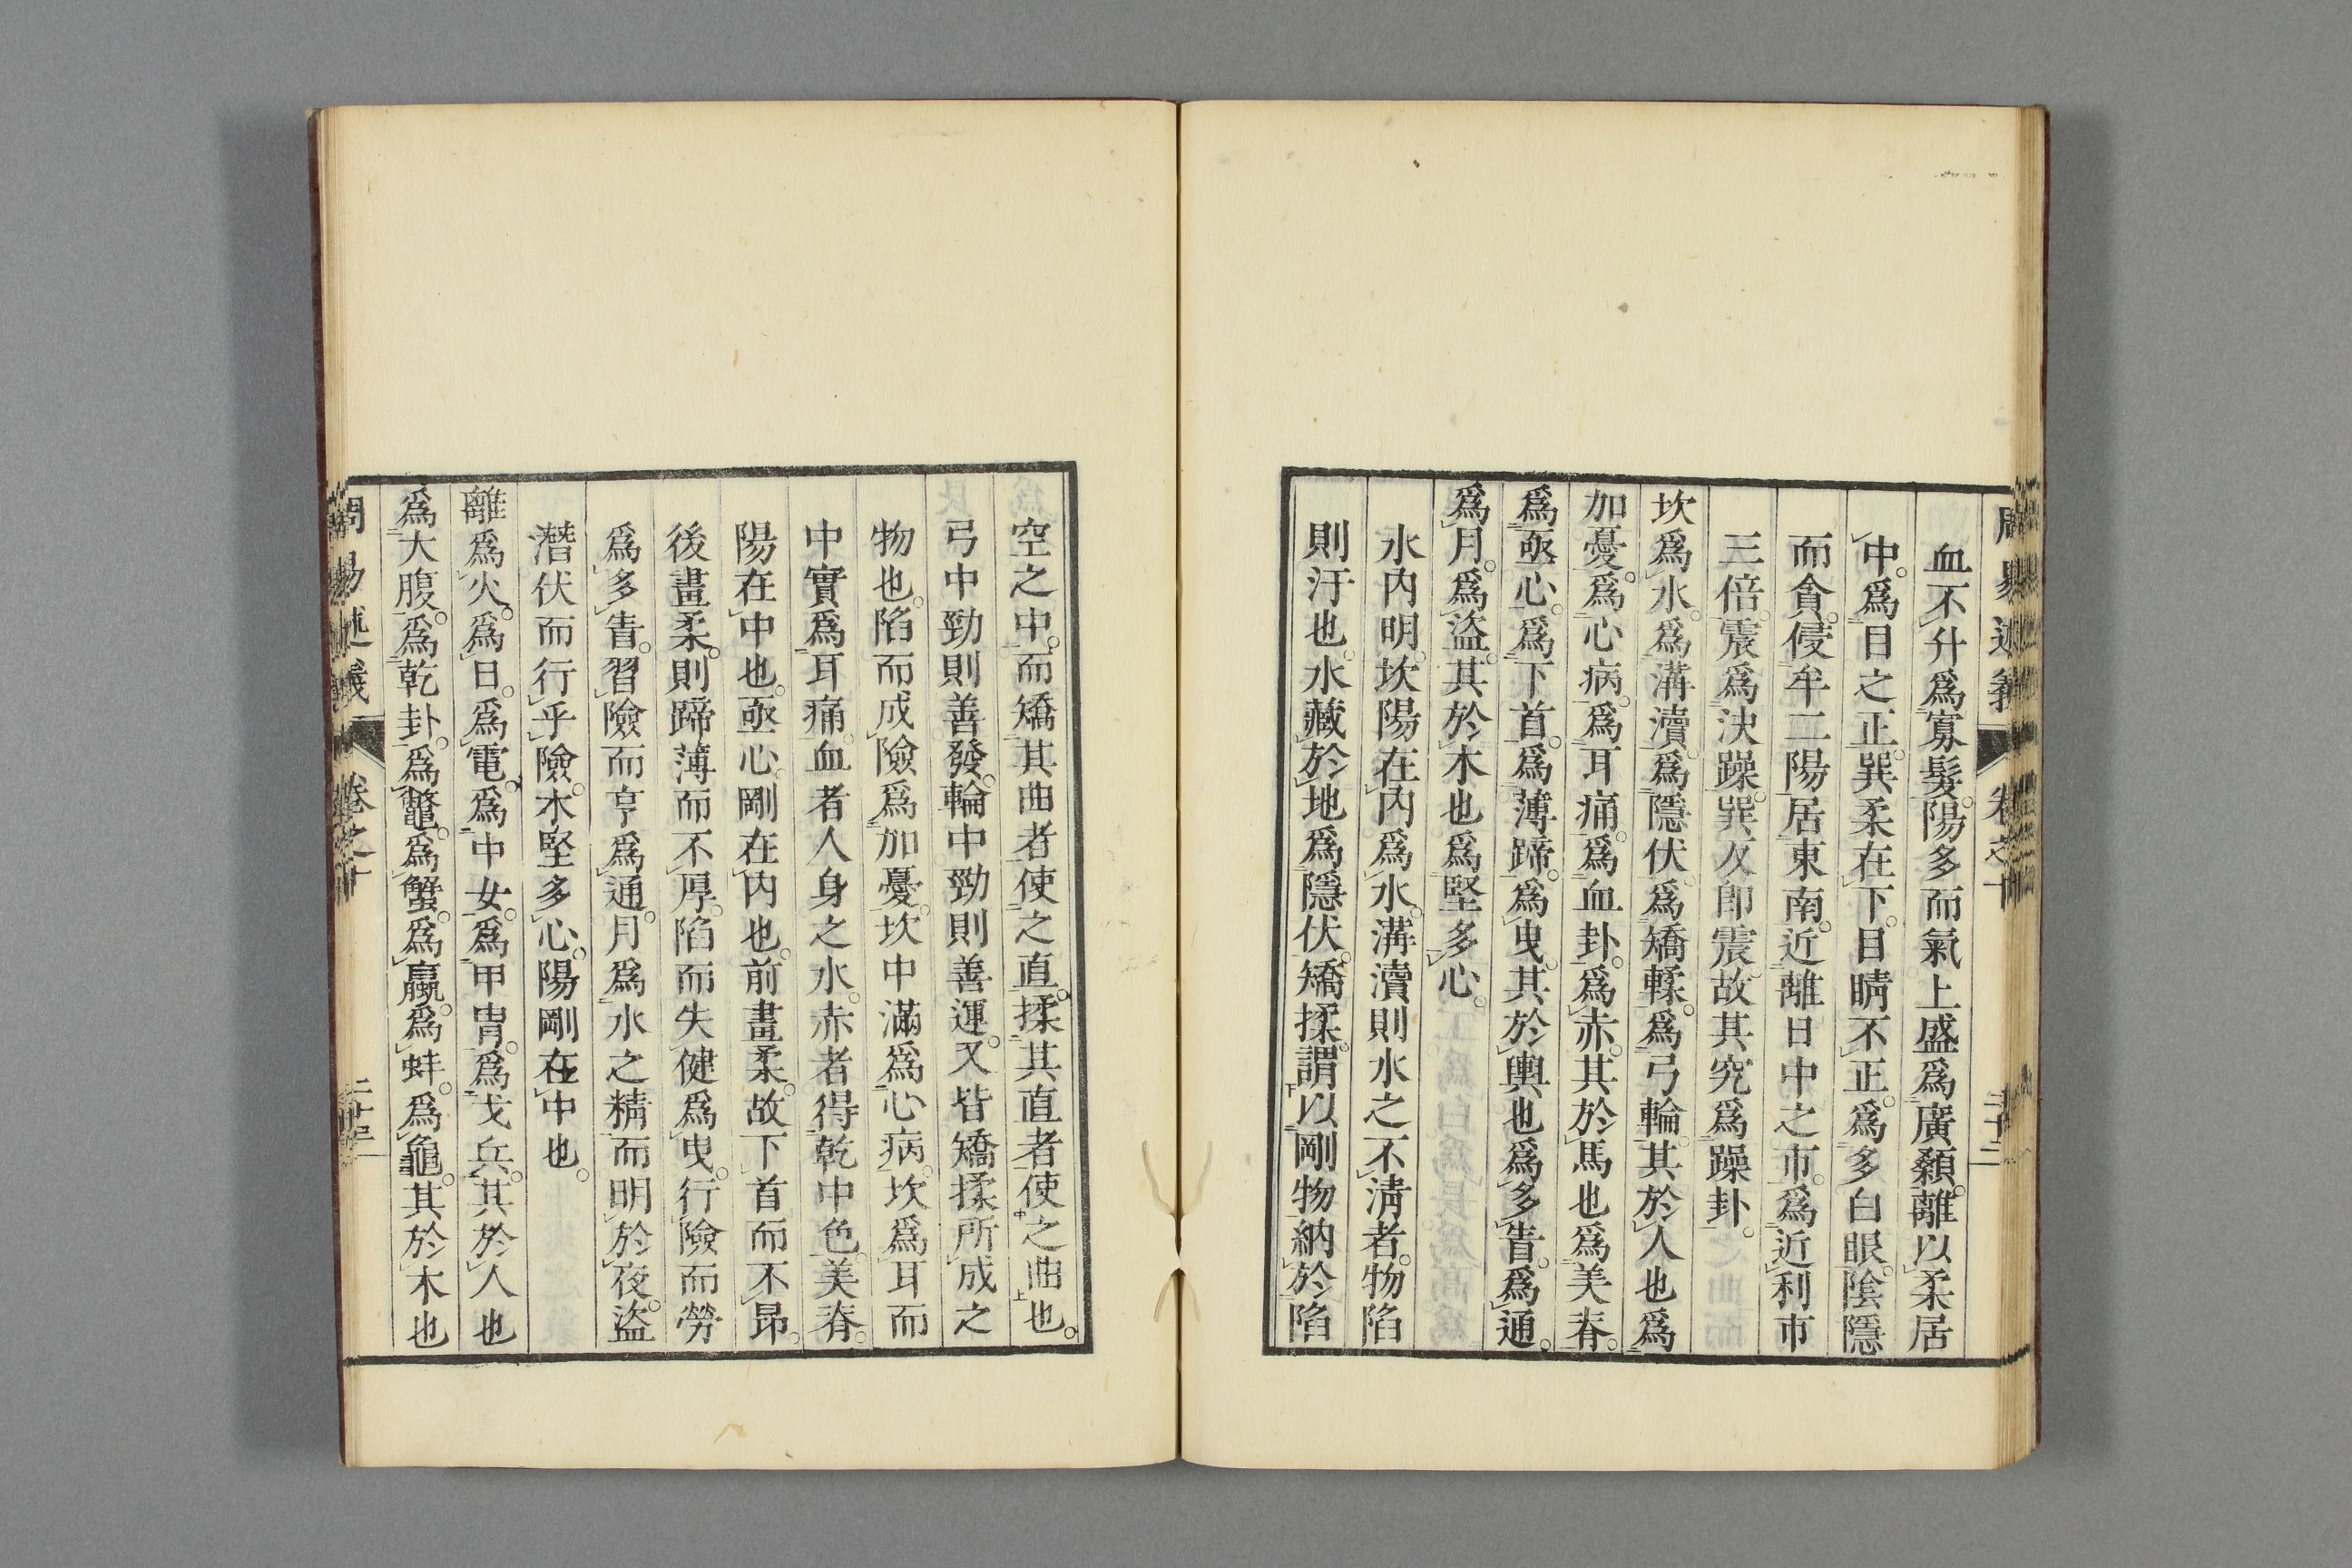 血不升爲寡髮。陽多而氣上盛爲廣顙。離以柔居
中。爲目之正。巽柔在下。目睛不正。爲多白眼。陰隱
而貪。侵牟二陽居東南。近離日中之市。爲近利市
三倍。震爲決躁。巽反卽震。故其究爲躁卦。
坎爲水。爲溝瀆。爲隱伏。爲矯輮。爲弓輪。其於人也爲
加憂。爲心病。爲耳痛。爲血卦。爲赤。其於馬也爲美脊。
爲亟心。爲下首。爲薄蹄。爲曳。其於輿也爲多眚。爲通。
爲月。爲盜。其於木也爲堅多心。
水內明。坎陽在內。爲水。溝瀆則水之不淸者。物陷
則汙也。水藏於地爲隱伏。矯揉。謂以剛物納於陷
空之中。而矯其曲者使之直。揉其直者使之曲也。
弓中勁則善發。輪中勁則善運。又皆矯揉所成之
物也。陷而成險爲加憂。坎中滿爲心病。坎爲耳而
中實爲耳痛。血者人身之水。赤者得乾中色。美脊。
陽在中也。亟心。剛在內也。前畫柔。故下首而不昂。
後畫柔。則蹄薄而不厚。陷而失健爲曳。行險而勞
爲多眚。習險而亨爲通。月爲水之精而明於夜。盜
潛伏而行乎險。木堅多心。陽剛在中也。
離爲火。爲日。爲電。爲中女。爲甲冑。爲戈兵。其於人也
爲大腹。爲乾卦。爲鼈。爲蟹。爲蠃。爲蚌。爲龜。其於木也
易述義 卷之十